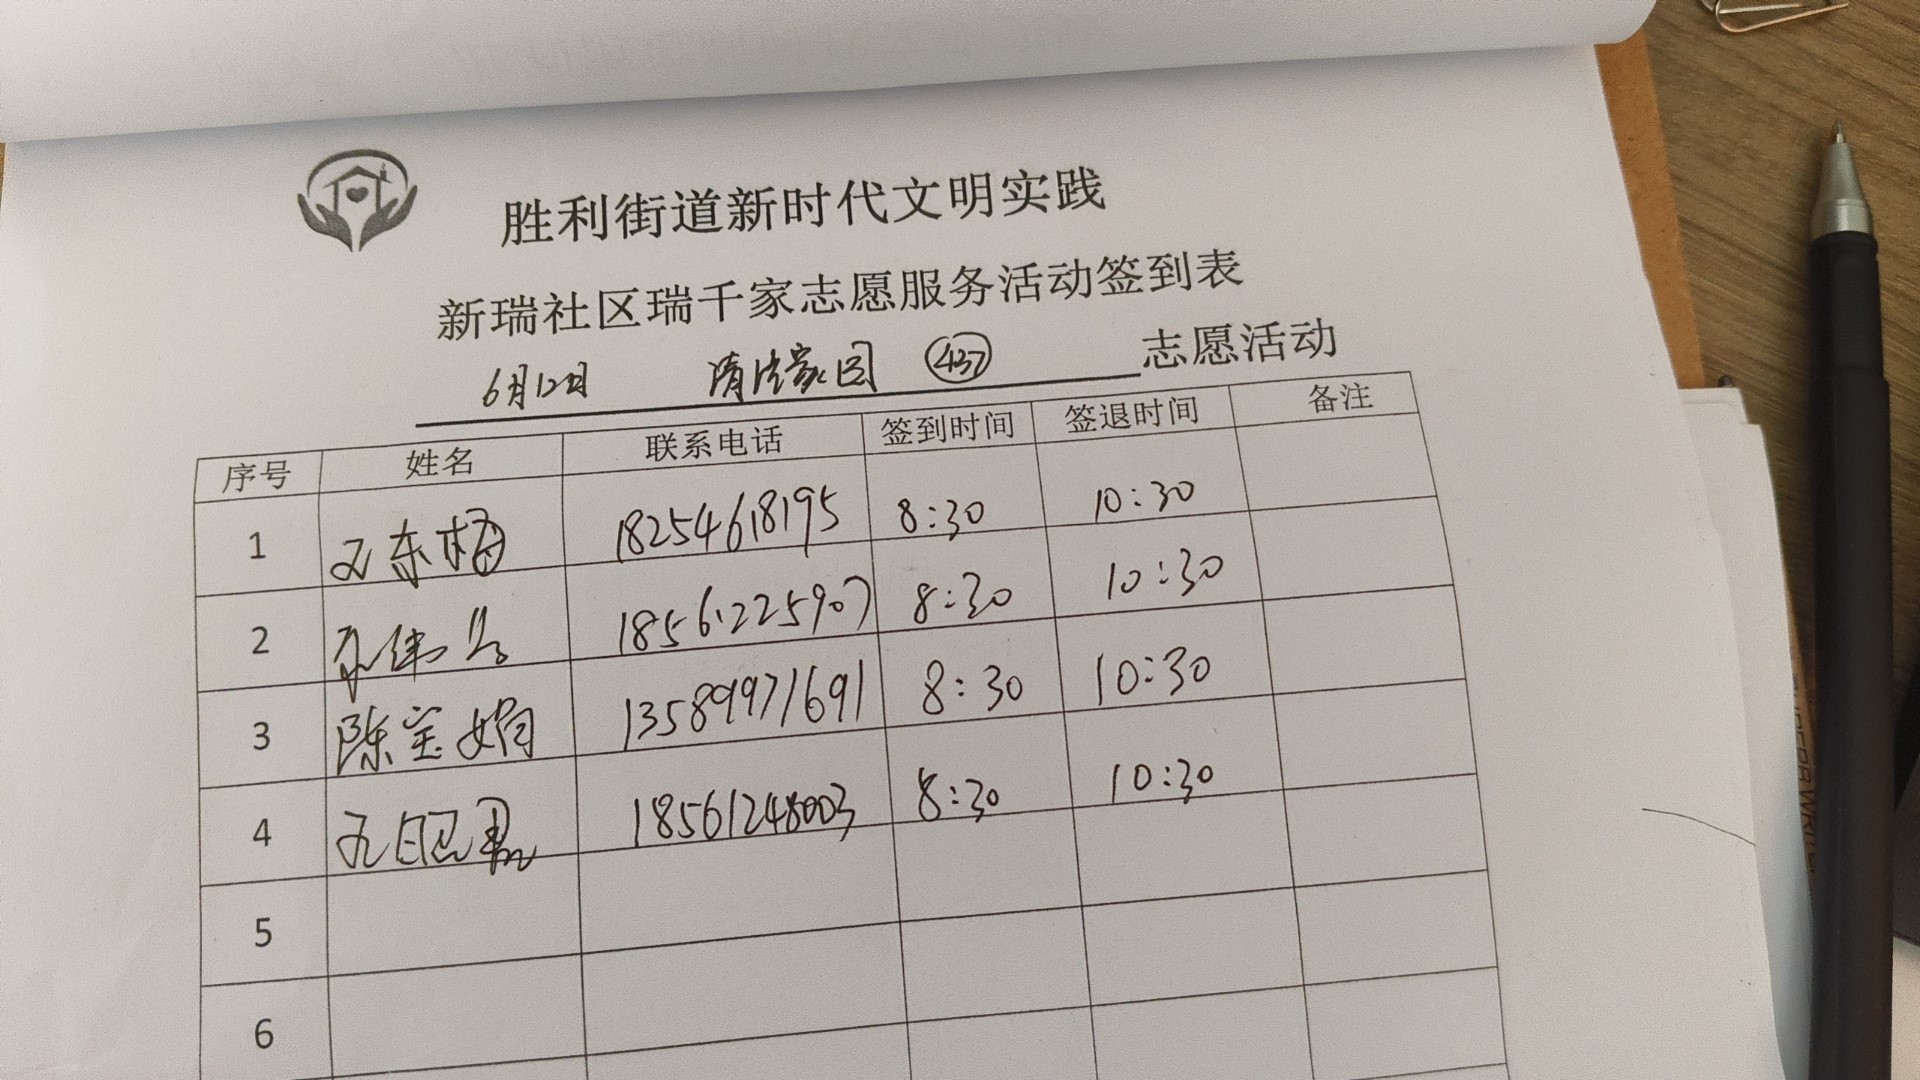 胜利街道新时代文明实践
新瑞社区瑞千家志愿服务活动签到表
6月12日 清洁家园 437 志愿活动
序号 姓名 联系电话 签到时间 签退时间 备注
1 王东梅 18254618195 8:30 10:30
2 18561225907 8:30 10:30
3 陈宝娟 13589971691 8:30 10:30
4 18561248003 8:30 10:30
5
6